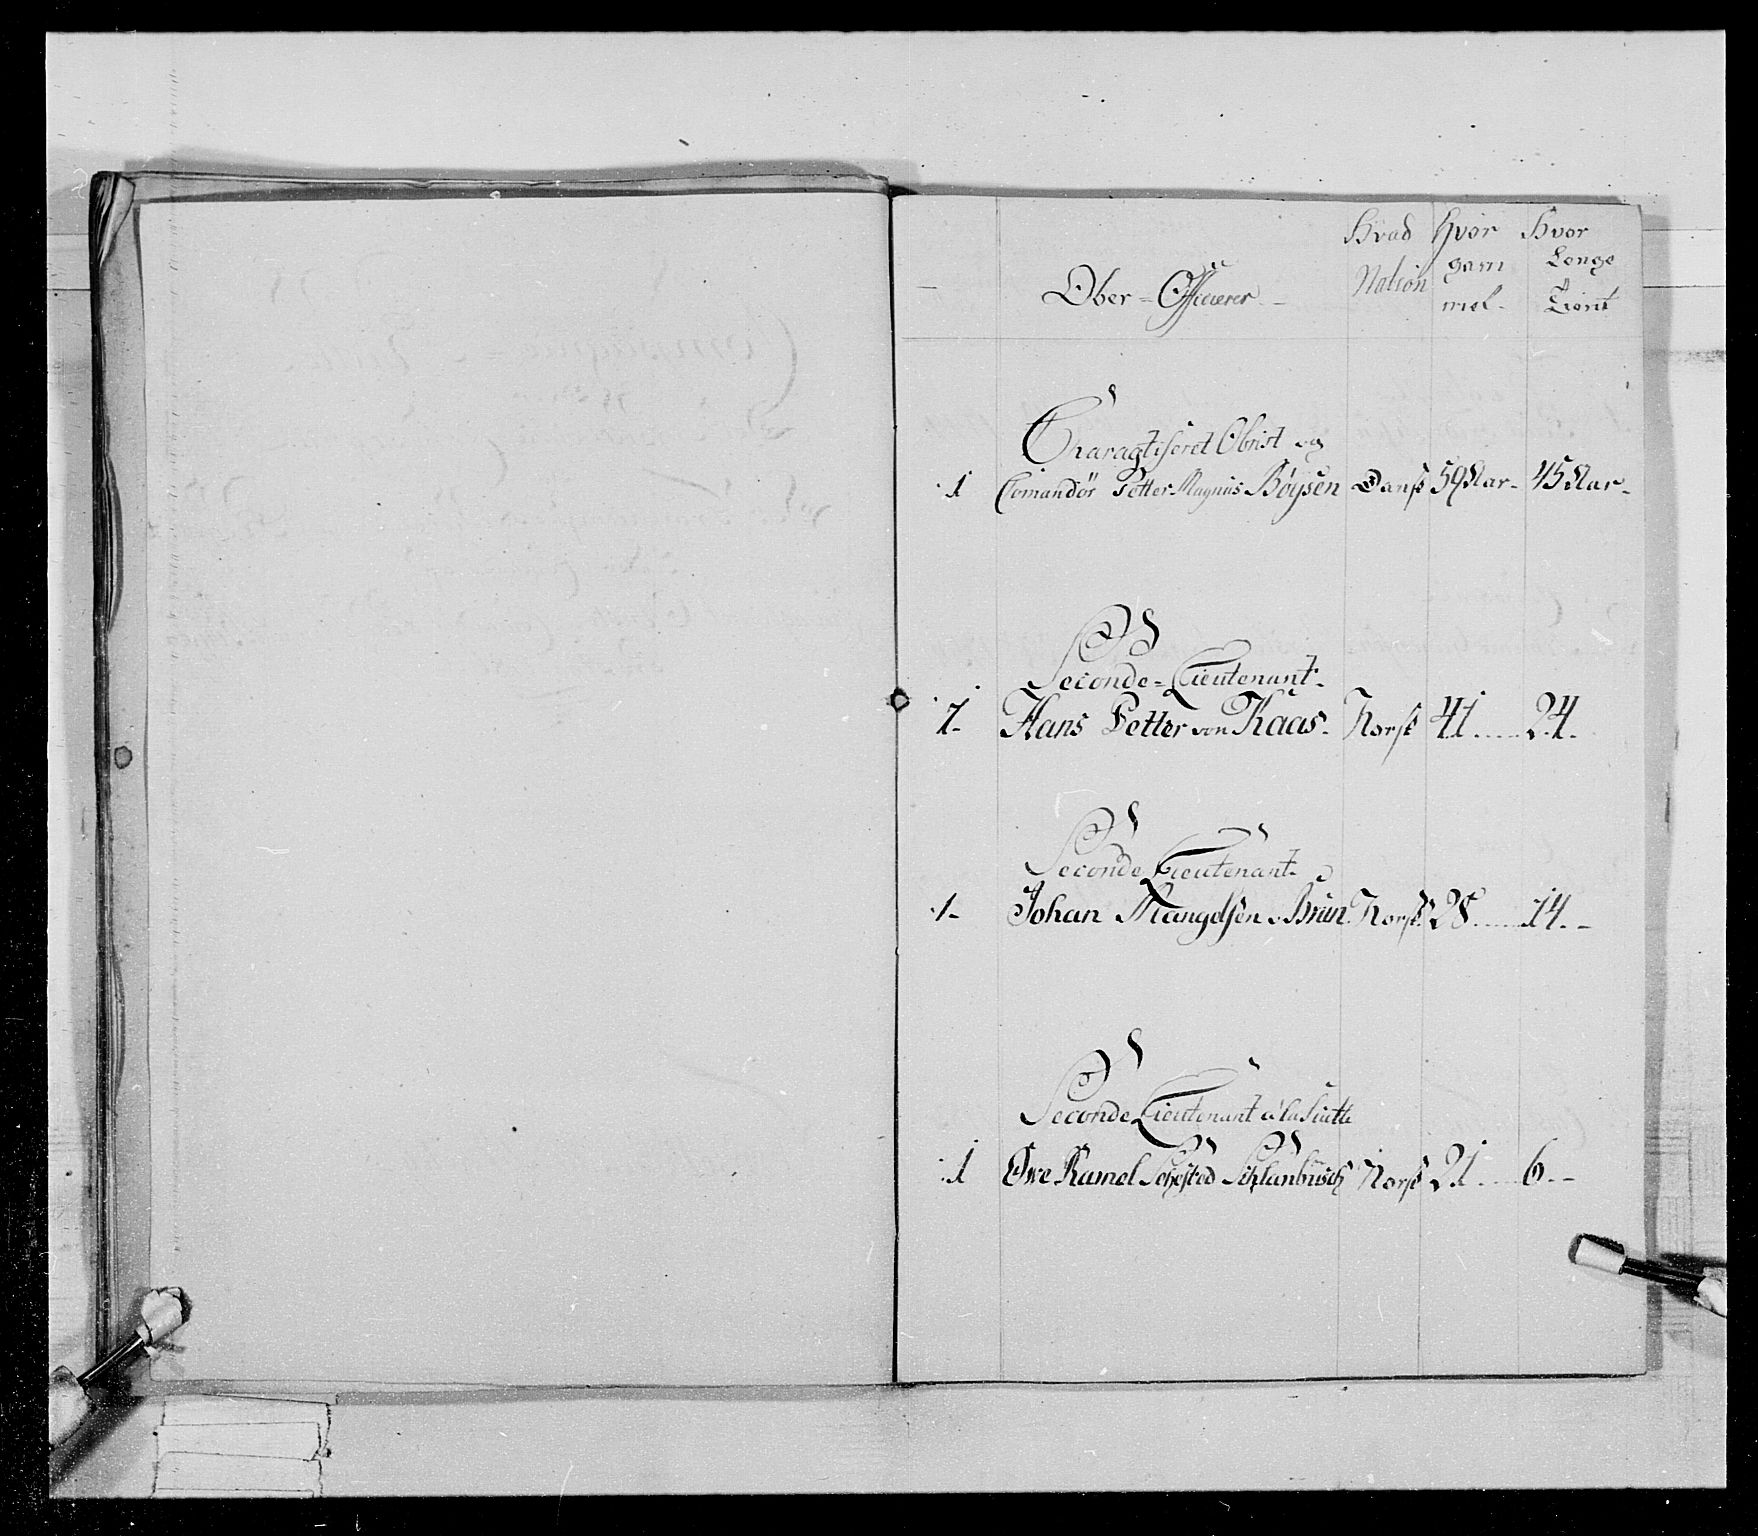 Ober=Officerer
Hvad Nation
Hvor gammel
Hvor Lenge Tient
Charagtiseret Obrist og
1 Comandör Petter Magnus Böysen Dansk 59 Aar 45 Aar
Seconde=Lieutenant
1 Hans Petter von Kaas Norsk 41 24
Seconde Lieutenant
1 Johan Mangelsen v. Brun Norsk 28 14
Seconde Lieutenant à la Suitte
1 Ove Ramel Sehested Schlanbusch Norsk 21 6